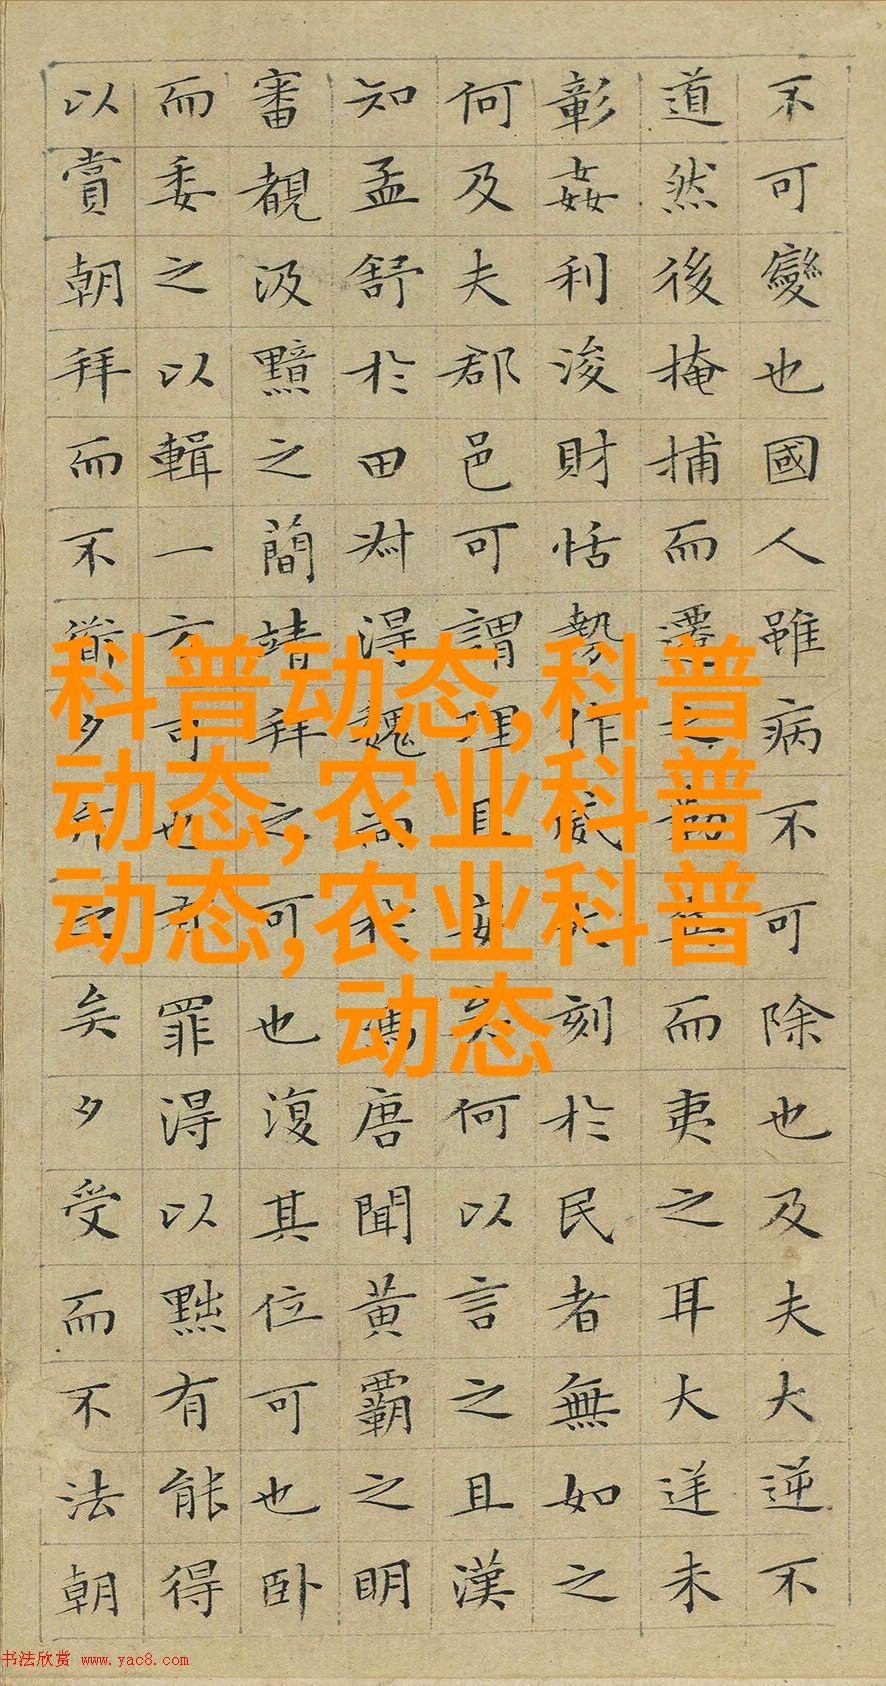 不可變也國人雖病不可除也及夫大逆不
道然後掩捕而遷之勒兵而夷之耳大逆未
彰姦利浚財怙勢作威大刻於民者無如之
何及夫郡邑可謂理且安矣何以言之且漢
知孟舒於田叔得魏尚於馮唐聞黃霸之明
審覩汲黯之簡靖拜之可也復其位可也卧
而委之以輯一方可也有罪得以黜有能得
以賞朝拜而不道夕斥之矣夕受而不法朝
科普动态,科普
动态,农业科普
动态,农业科普
动态
书法欣赏 www.yac8.com